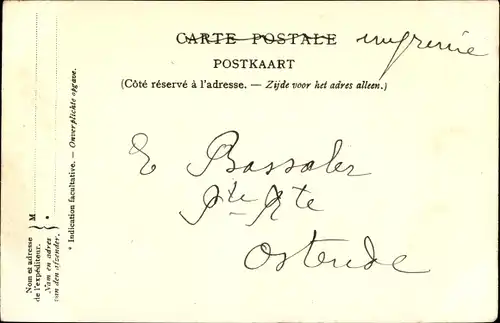 CARTE POSTALE imprimé
POSTKAART
(Côté réservé à l'adresse. — Zijde voor het adres alleen.)
E
Pte Rte
Ostende
* Indication facultative. — Onverplichte opgave.
M
*
Nom et adresse
de l'expéditeur.
Nam en adres
van den afzender.